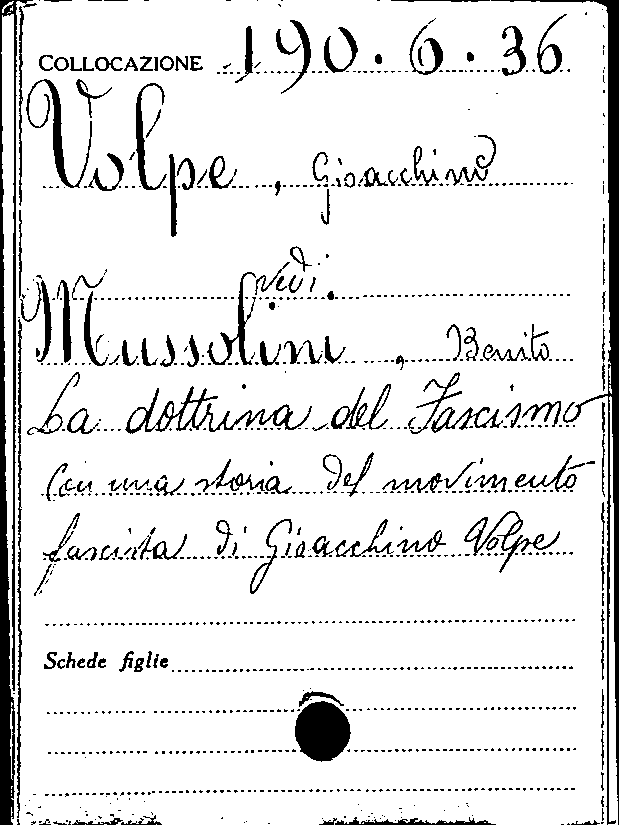 COLLOCAZIONE 190.6.36
Volpe, Gioacchino
vedi
Mussolini, Benito
La dottrina del Fascismo
con una storia del movimento
fascista di Gioacchino Volpe
Schede figlie